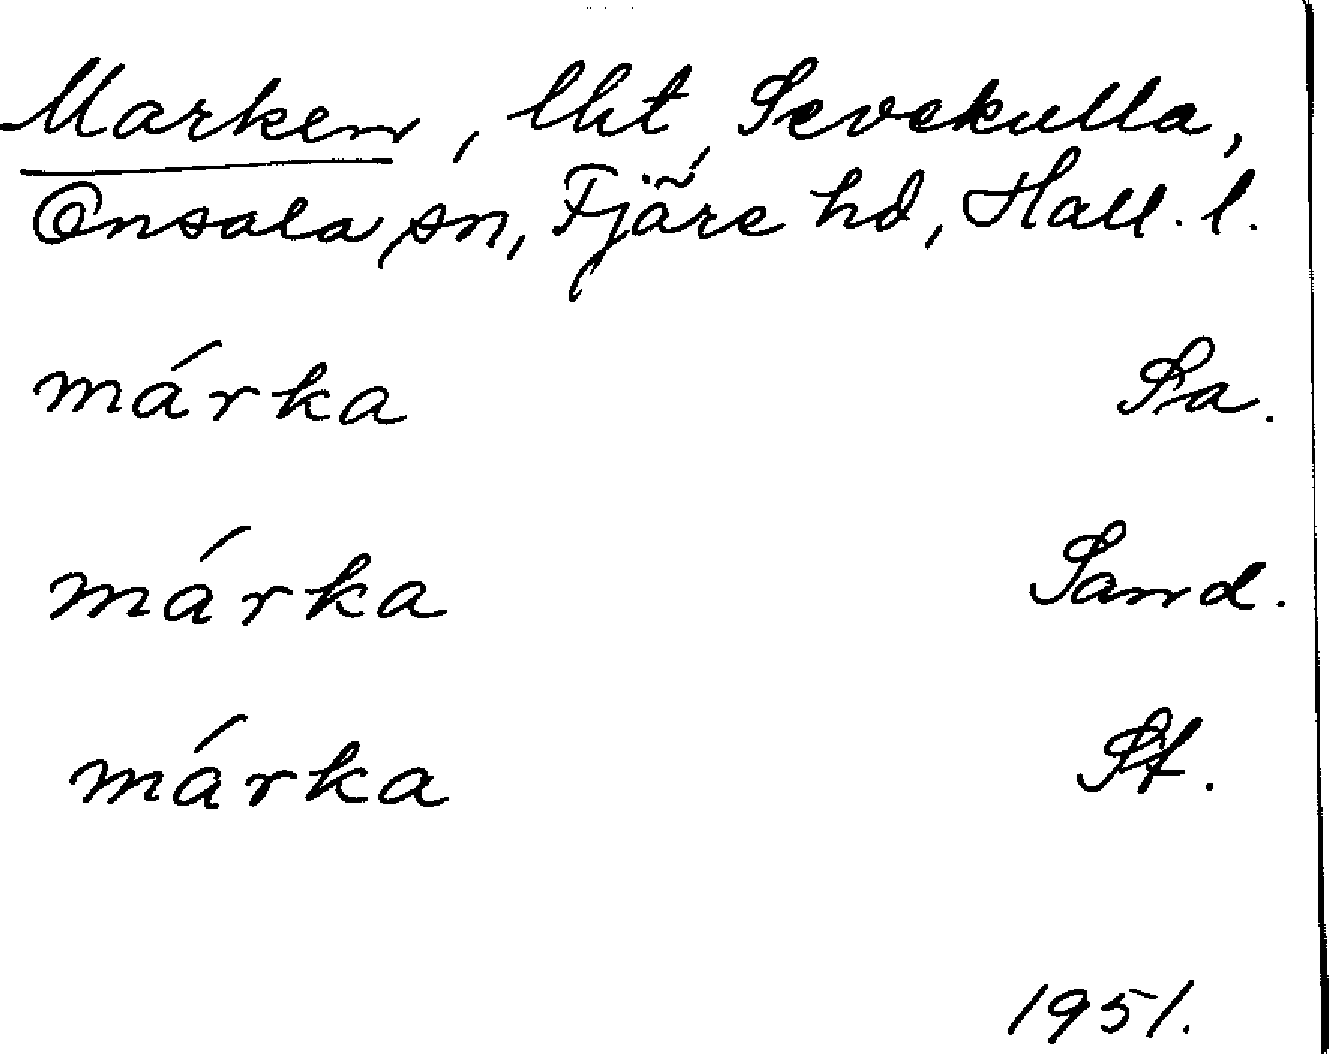 Marken, lht, Sevekulla,
Onsala sn, Fjäre hd, Hall. l.
márka Sa.
márka Sand.
márka St.
1951.